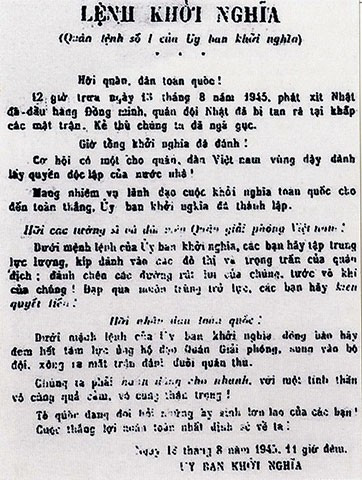 LỆNH KHỞI NGHĨA
(Quân lệnh số 1 của Ủy ban khởi nghĩa)
* * *
Hỡi quân, dân toàn quốc!
12 giờ trưa ngày 13 tháng 8 năm 1945, phát xít Nhật
đã đầu hàng Đồng minh, quân đội Nhật đã bị tan rã tại khắp
các mặt trận. Kẻ thù chúng ta đã ngã gục.
Giờ tổng khởi nghĩa đã đánh!
Cơ hội có một cho quân, dân Việt Nam vùng dậy giành
lấy quyền độc lập của nước nhà!
Mang nhiệm vụ lãnh đạo cuộc khởi nghĩa toàn quốc cho
đến toàn thắng, Ủy ban khởi nghĩa đã thành lập.
Hỡi các tướng sĩ và đội viên Quân giải phóng Việt Nam!
Dưới mệnh lệnh của Ủy ban khởi nghĩa, các bạn hãy tập trung
lực lượng, kíp đánh vào các đô thị và trọng trấn của quân
địch; đánh chẹn các đường rút lui của chúng, tước võ khí
của chúng! Đạp qua muôn trùng trở lực, các bạn hãy kiên
quyết tiến!
Hỡi nhân dân toàn quốc!
Dưới mệnh lệnh của Ủy ban khởi nghĩa, đồng bào hãy
đem hết tâm lực ủng hộ đạo Quân Giải phóng, sung vào bộ
đội, xông ra mặt trận đánh đuổi quân thù.
Chúng ta phải hành động cho nhanh, với một tinh thần
vô cùng quả cảm, vô cùng thận trọng!
Tổ quốc đang đòi hỏi những hy sinh lớn lao của các bạn!
Cuộc thắng lợi hoàn toàn nhất định sẽ về ta!
Ngày 13 tháng 8 năm 1945, 11 giờ đêm.
ỦY BAN KHỞI NGHĨA